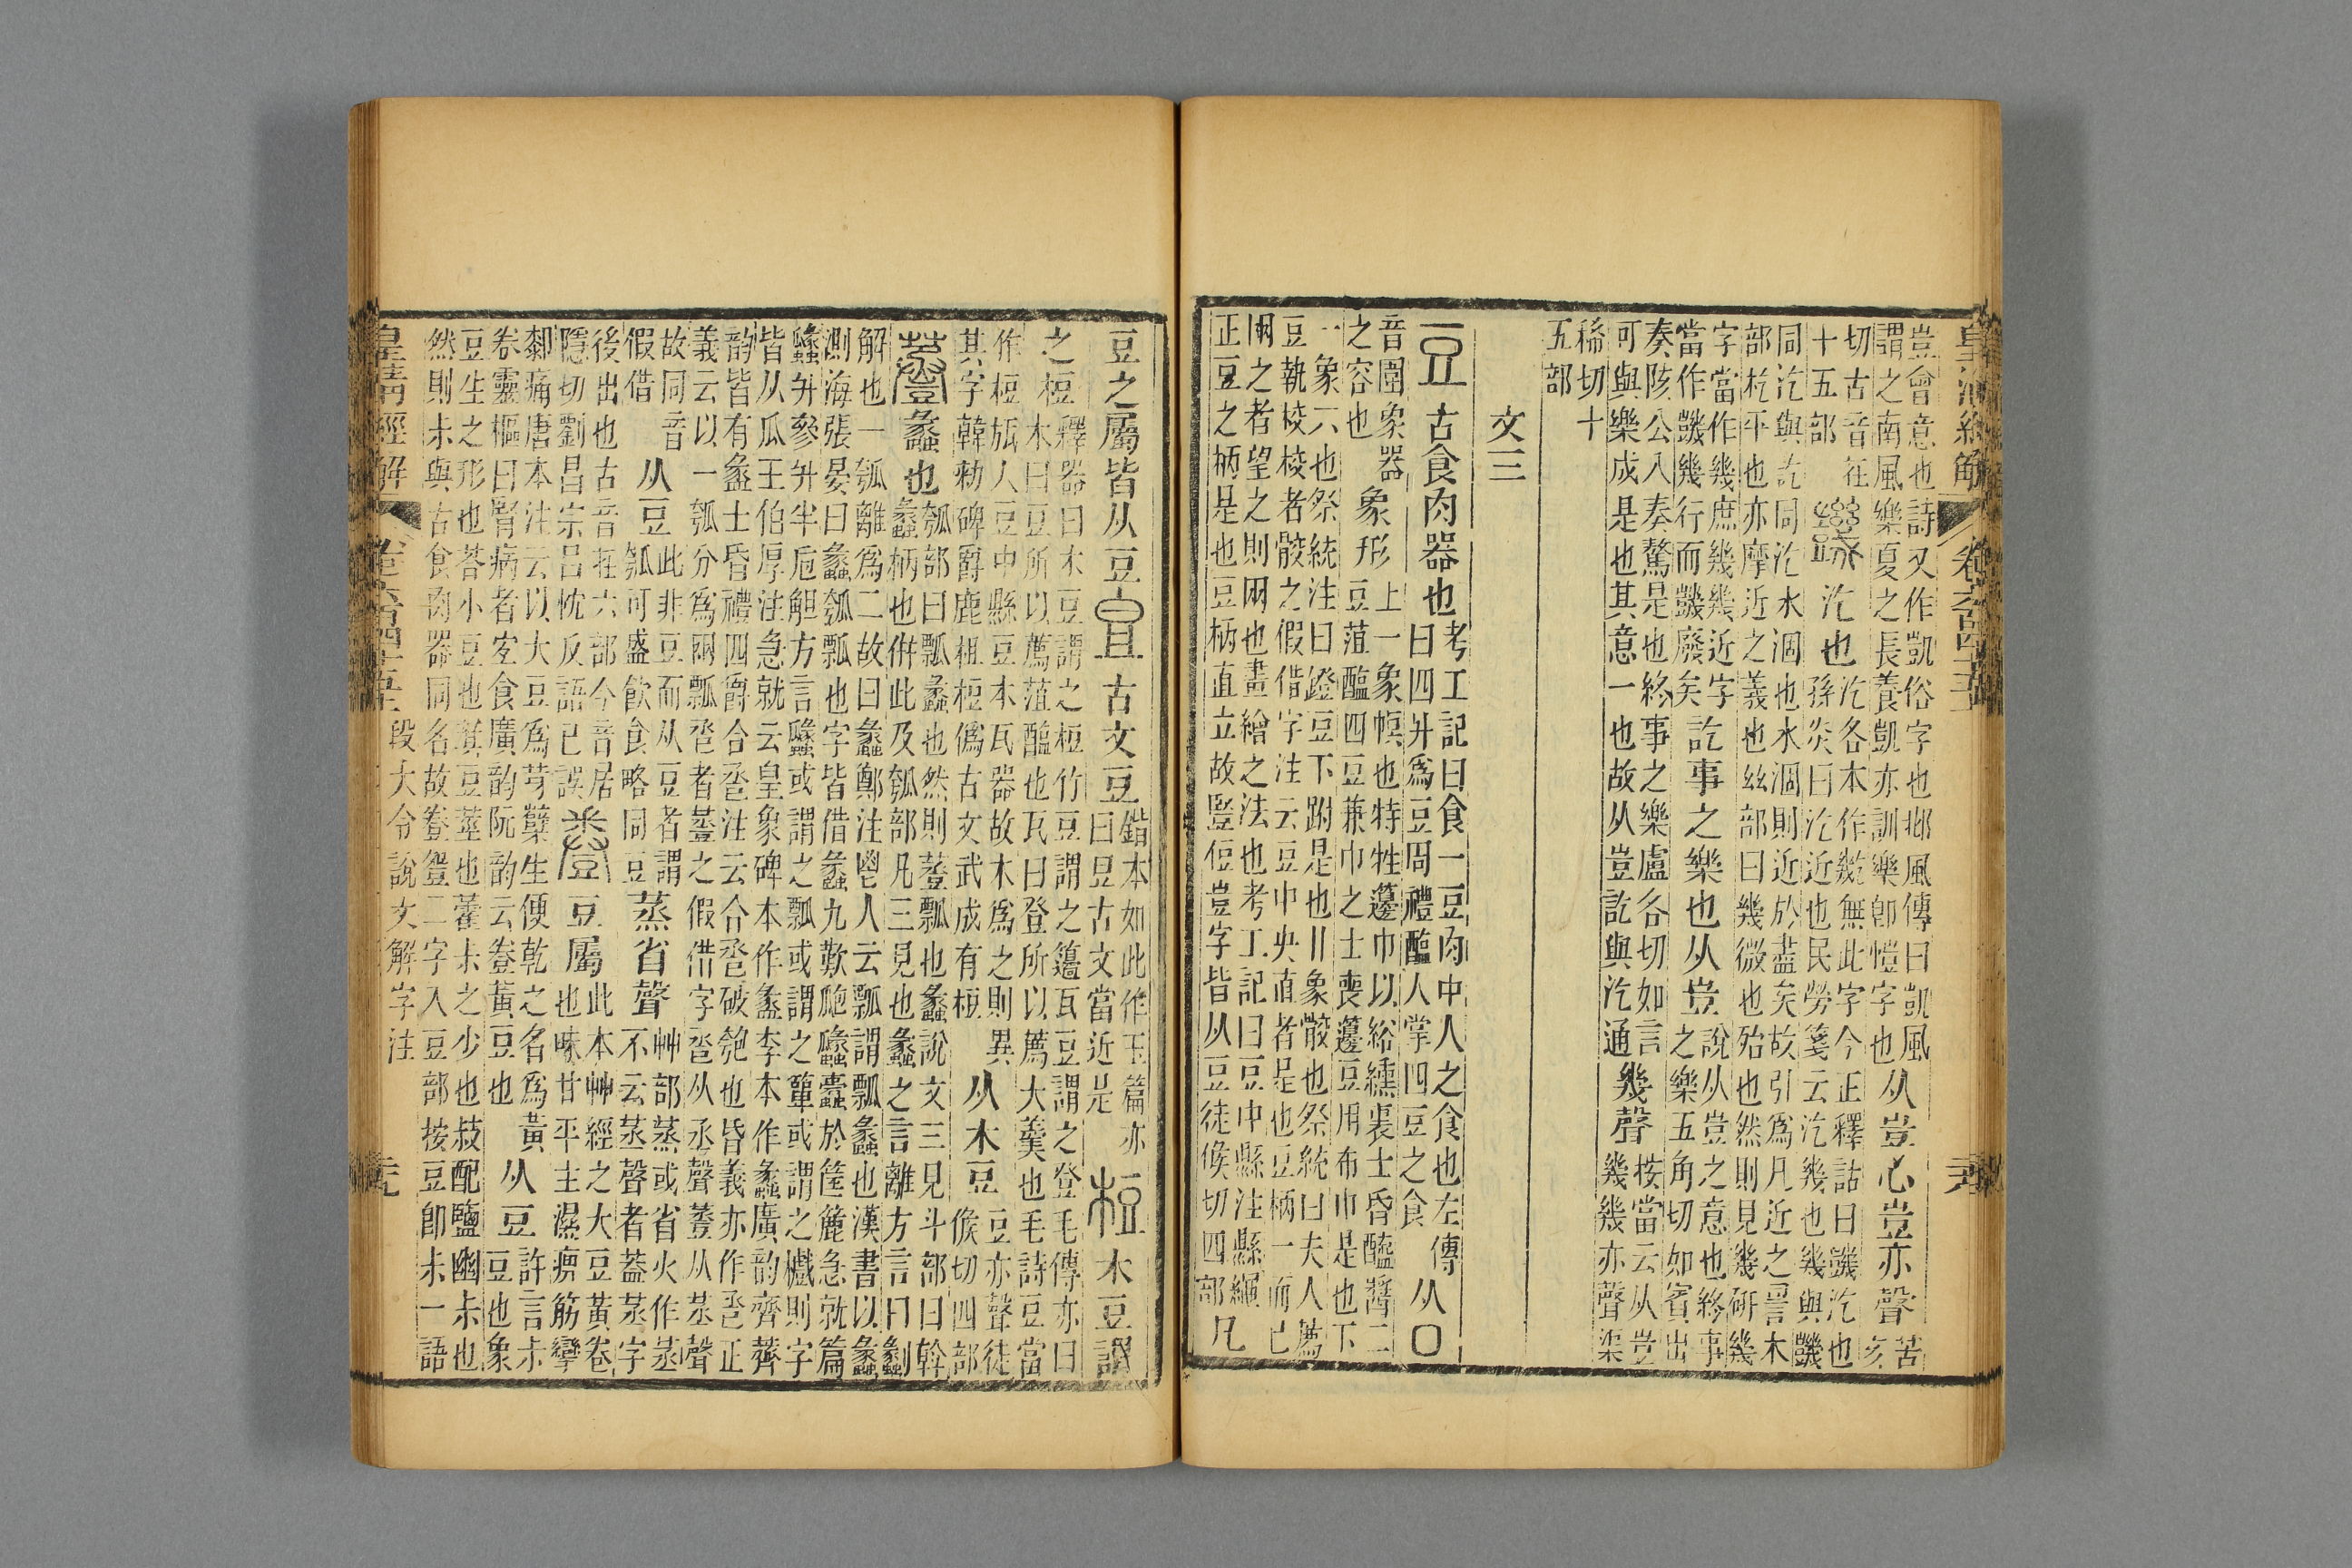 皇清經解 卷六百四十五 六
豈會意也詩又作凱俗字也邶風傳曰凱風
謂之南風樂夏之長養凱亦訓樂卽愷字也
从豈心豈亦聲
苦亥
切古音在
十五部
汔也
汔各本作𣪠無此字今正釋詁曰譏汔也
孫炎曰汔近也民勞箋云汔幾也幾與譏
同汔與訖同汔水涸也水涸則近於盡矣故引爲凡近之䛐木
部杚平也亦摩近之義也𢆶部曰幾微也殆也然則見幾硏幾
字當作幾庶幾幾近字
當作譏幾行而譏廢矣
訖事之樂也从豈
說从豈之意也終事
之樂五角切如賓出
奏陔公入奏驁是也終事之樂盧各切如言
可與樂成是也其意一也故从豈訖與汔通
幾聲
按當云从豈
幾幾亦聲渠
稀切十
五部
文三
豆 古食肉器也
考工記曰食一豆肉中人之食也左傳
曰四升爲豆周禮醢人掌四豆之食
从口
音圍象器
之容也
象形
上一象幎也特牲籩巾以綌纁裏士昏醯醬二
豆菹醢四豆兼巾之士喪籩豆用布巾是也下
一象丌也祭統注曰鐙豆下跗是也〢象骹也祭統曰夫人薦
豆執校校者骹之假借字注云豆中央直者是也豆柄一而已
㒳之者望之則㒳也畫繪之法也考工記曰豆中縣注縣繩
正豆之柄是也豆柄直立故豎侸豈字皆从豆徒候切四部
凡
豆之屬皆从豆
古文豆
鍇本如此作玉篇亦
曰㿝古文當近是
梪 木豆謂
之梪
釋器曰木豆謂之梪竹豆謂之籩瓦豆謂之登毛傳亦曰
木曰豆所以薦菹醢也瓦曰登所以薦大羹也毛詩豆當
作梪㼚人豆中縣豆本瓦器故木爲之則異
其字韓勑碑爵鹿柤梪僞古文武成有梪
从木豆
豆亦聲徒
候切四部
䕫 蠡也
瓠部曰瓢蠡也然則䕫瓢也蠡說文三見斗部曰斡
蠡柄也倂此及瓠部凡三見也蠡之言離方言曰劙
解也一瓠離爲二故曰蠡鄭注鬯人云瓢謂瓢蠡也漢書以蠡
測海張晏曰蠡瓠瓢也字皆借蠡九歎瓟㼖蠹於筐簏急就篇
㼖升參升半卮觛方言㼖或謂之瓢或謂之簞或謂之㰕則字
皆从瓜王伯厚注急就云皇象碑本作盠李本作蠡廣韵齊薺
韵皆有盠士昏禮四爵合巹注云合巹破匏也昏義亦作巹正
義云以一瓠分爲兩瓢巹者䕫之假借字巹从丞聲䕫从烝聲
故同音
假借
从豆
此非豆而从豆者謂
瓠可盛飮食略同豆
蒸省聲
艸部蒸或省火作𦯋
不云烝聲者葢𦯋字
後出也古音在六部今音居
隱切劉昌宗呂忱反語已誤
豋 豆屬也
此本艸經之大豆黃卷
味甘平主濕痹筋攣
厀痛唐本注云以大豆爲芽櫱生便乾之名爲黃
卷靈樞曰腎病者宐食廣韵阮韵云豋黃豆也
从豆
許言尗
豆也象
豆生之形也荅小豆也萁豆莖也藿尗之少也敊配鹽幽尗也
然則尗與古食肉器同名故豋䇺二字入豆部按豆卽尗一語
皇清經解 卷六百四十五 段大令說文解字注